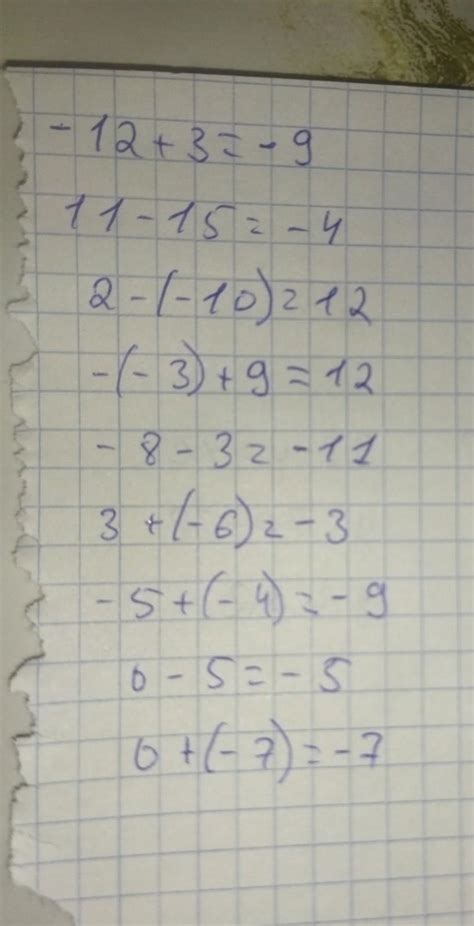 -12+3=-9
11-15=-4
2-(-10)=12
-(-3)+9=12
-8-3=-11
3+(-6)=-3
-5+(-4)=-9
0-5=-5
0+(-7)=-7